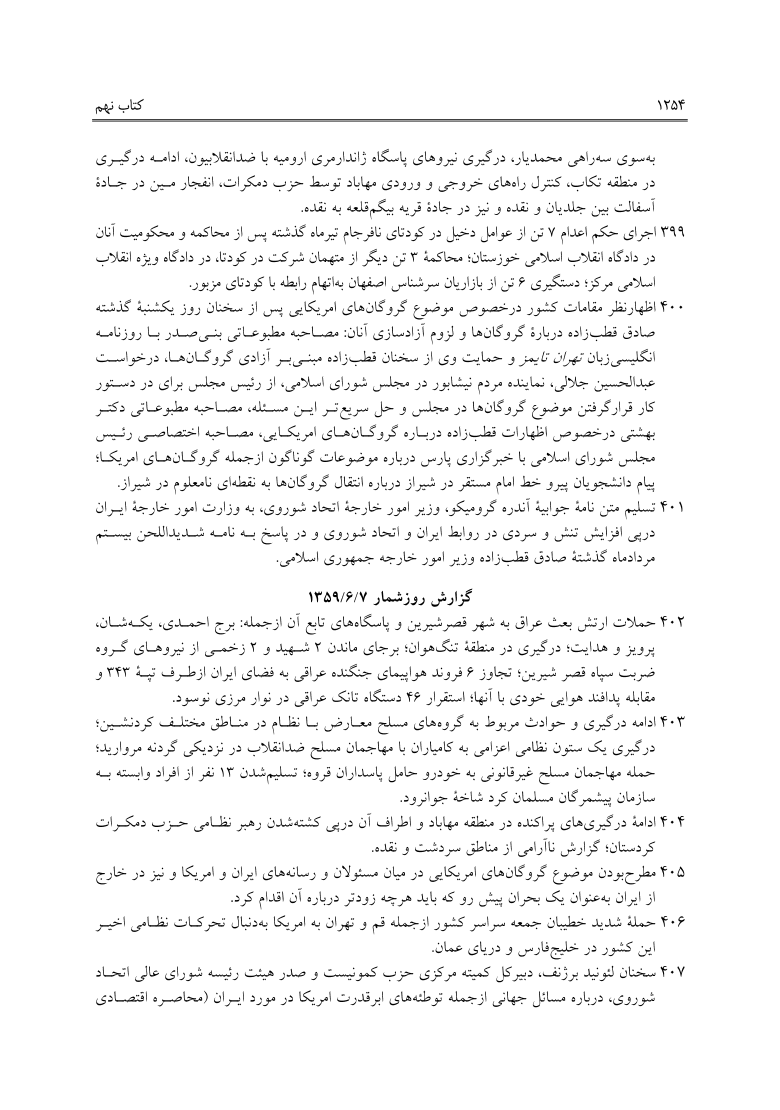 ۱۲۵۴ کتاب نهم
به‌سوی سه‌راهی محمدیار، درگیری نیروهای پاسگاه ژاندارمری ارومیه با ضدانقلابیون، ادامـه درگیـری
در منطقه تکاب، کنترل راه‌های خروجی و ورودی مهاباد توسط حزب دمکرات، انفجار مـین در جـادهٔ
آسفالت بین جلدیان و نقده و نیز در جادهٔ قریه بیگم‌قلعه به نقده.
۳۹۹ اجرای حکم اعدام ۷ تن از عوامل دخیل در کودتای نافرجام تیرماه گذشته پس از محاکمه و محکومیت آنان
در دادگاه انقلاب اسلامی خوزستان؛ محاکمهٔ ۳ تن دیگر از متهمان شرکت در کودتا، در دادگاه ویژه انقلاب
اسلامی مرکز؛ دستگیری ۶ تن از بازاریان سرشناس اصفهان به‌اتهام رابطه با کودتای مزبور.
۴۰۰ اظهارنظر مقامات کشور درخصوص موضوع گروگان‌های امریکایی پس از سخنان روز یکشنبهٔ گذشته
صادق قطب‌زاده دربارهٔ گروگان‌ها و لزوم آزادسازی آنان: مصـاحبه مطبوعـاتی بنـی‌صـدر بـا روزنامـه
انگلیسی‌زبان تهران تایمز و حمایت وی از سخنان قطب‌زاده مبنـی‌بـر آزادی گروگـان‌هـا، درخواسـت
عبدالحسین جلالی، نماینده مردم نیشابور در مجلس شورای اسلامی، از رئیس مجلس برای در دسـتور
کار قرارگرفتن موضوع گروگان‌ها در مجلس و حل سریع‌تـر ایـن مسـئله، مصـاحبه مطبوعـاتی دکتـر
بهشتی درخصوص اظهارات قطب‌زاده دربـاره گروگـان‌هـای امریکـایی، مصـاحبه اختصاصـی رئـیس
مجلس شورای اسلامی با خبرگزاری پارس درباره موضوعات گوناگون ازجمله گروگـان‌هـای امریکـا؛
پیام دانشجویان پیرو خط امام مستقر در شیراز درباره انتقال گروگان‌ها به نقطه‌ای نامعلوم در شیراز.
۴۰۱ تسلیم متن نامهٔ جوابیهٔ آندره گرومیکو، وزیر امور خارجهٔ اتحاد شوروی، به وزارت امور خارجهٔ ایـران
درپی افزایش تنش و سردی در روابط ایران و اتحاد شوروی و در پاسخ بـه نامـه شـدیداللحن بیسـتم
مردادماه گذشتهٔ صادق قطب‌زاده وزیر امور خارجه جمهوری اسلامی.
گزارش روزشمار ۱۳۵۹/۶/۷
۴۰۲ حملات ارتش بعث عراق به شهر قصرشیرین و پاسگاه‌های تابع آن ازجمله: برج احمـدی، یکـه‌شـان،
پرویز و هدایت؛ درگیری در منطقهٔ تنگ‌هوان؛ برجای ماندن ۲ شـهید و ۲ زخمـی از نیروهـای گـروه
ضربت سپاه قصر شیرین؛ تجاوز ۶ فروند هواپیمای جنگنده عراقی به فضای ایران ازطـرف تپـهٔ ۳۴۳ و
مقابله پدافند هوایی خودی با آنها؛ استقرار ۴۶ دستگاه تانک عراقی در نوار مرزی نوسود.
۴۰۳ ادامه درگیری و حوادث مربوط به گروه‌های مسلح معـارض بـا نظـام در منـاطق مختلـف کردنشـین؛
درگیری یک ستون نظامی اعزامی به کامیاران با مهاجمان مسلح ضدانقلاب در نزدیکی گردنه مروارید؛
حمله مهاجمان مسلح غیرقانونی به خودرو حامل پاسداران قروه؛ تسلیم‌شدن ۱۳ نفر از افراد وابسته بـه
سازمان پیشمرگان مسلمان کرد شاخهٔ جوانرود.
۴۰۴ ادامهٔ درگیری‌های پراکنده در منطقه مهاباد و اطراف آن درپی کشته‌شدن رهبر نظـامی حـزب دمکـرات
کردستان؛ گزارش ناآرامی از مناطق سردشت و نقده.
۴۰۵ مطرح‌بودن موضوع گروگان‌های امریکایی در میان مسئولان و رسانه‌های ایران و امریکا و نیز در خارج
از ایران به‌عنوان یک بحران پیش رو که باید هرچه زودتر درباره آن اقدام کرد.
۴۰۶ حملهٔ شدید خطیبان جمعه سراسر کشور ازجمله قم و تهران به امریکا به‌دنبال تحرکـات نظـامی اخیـر
این کشور در خلیج‌فارس و دریای عمان.
۴۰۷ سخنان لئونید برژنف، دبیرکل کمیته مرکزی حزب کمونیست و صدر هیئت رئیسه شورای عالی اتحـاد
شوروی، درباره مسائل جهانی ازجمله توطئه‌های ابرقدرت امریکا در مورد ایـران (محاصـره اقتصـادی